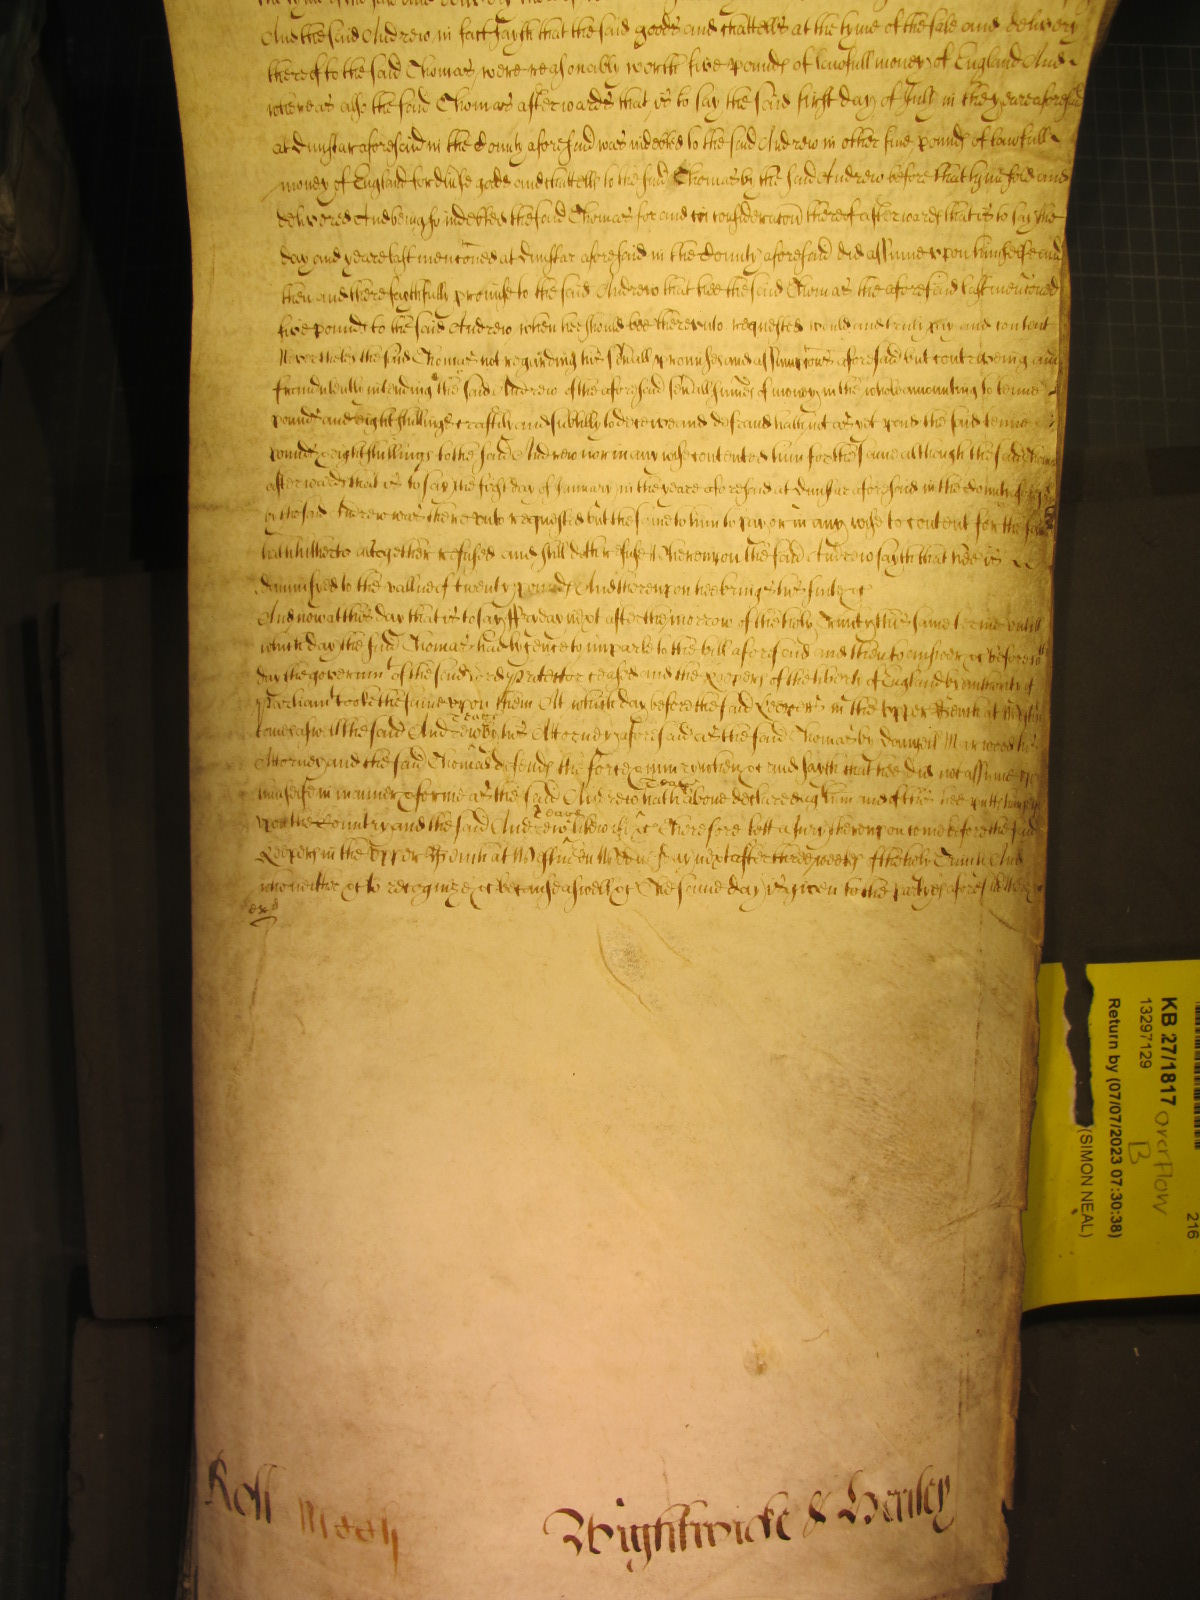 And the said Andrew in fact sayth that the said goods and chattells at the tyme of the sale and delivery
thereof to the said Thomas were reasonably worth five pounds of lawfull money of England And
whereas alsoe the said Thomas afterwards that is to say the said first day of July in the yeare aforesaid
at Dunstar aforesaid in the County aforesaid was indebted to the said Andrew in other five pounds of lawfull
money of England for diverse goods and chattells to the said Thomas by the said Andrew before that tyme sold and
delivered And being so indebted the said Thomas for and in consideracon thereof afterwards that is to say the
day and yeare last mentioned at Dunstar aforesaid in the County aforesaid did assume upon himselfe and
then and there faythfully promise to the said Andrew that hee the said Thomas the aforesaid last mentioned
five pounds to the said Andrew when hee should bee thereunto requested would well and truly pay and content
Neverthelesse the said Thomas not regarding his severall promises and assumptions aforesaid but contriveing and
fraudulently intending the said Andrew of the aforesaid severall summes of money in the whole amounting to tenne
pounds and eight shillings craftily and subtilly to deceive and defraud hath not as yet payd the said tenne
pounds eight shillings to the said Andrew nor in any wise contented him for the same although the said Thomas
afterwards that is to say the first day of January in the yeare aforesaid at Dunstar aforesaid in the County aforesaid
by the said Andrew was thereunto requested but the same to him to pay or in any wise to content for the same
hath hitherto altogether refused and still doth refuse Whereupon the said Andrew sayth that hee is
damnifyed to the vallue of twenty pounds And thereupon hee brings his suite &c
And now at this day that is to say Fryday next after the morrow of the holy Trinity this same terme untill
which day the said Thomas had lycence to imparle to the bill aforesaid and then to answer &c before wch
day the governmt of the said Lord Protector ceased and the Keepers of the liberty of England by authority of
Parliamt tooke the same upon them At which day before the said Keepers in the upper Bench at Westm
came aswell the said Andrew
Teare
by his Attorney aforesaid as the said Thomas by Marwood his
Attorney and the said Thomas defends the force & iniury when &c and sayth that hee did not assume upon
himselfe in manner & forme as the said Andrew
Teare
hath above declared agt him and of this hee putts himselfe
upon the Country and the said Andrew
Teare
likewise &c Therefore lett a Jury thereupon come before the said
Keepers in the Upper Bench at Westm on Wednesday next after three weeks of the holy Trinity And
who neither &c to recognize &c because aswell &c The same day is given to the partyes aforesaid there
&c
Roll
Wightwicke & Henley
KB 27/1817 overflow
B
13297129
Return by (07/07/2023 07:30:38)
(SIMON NEAL)
216